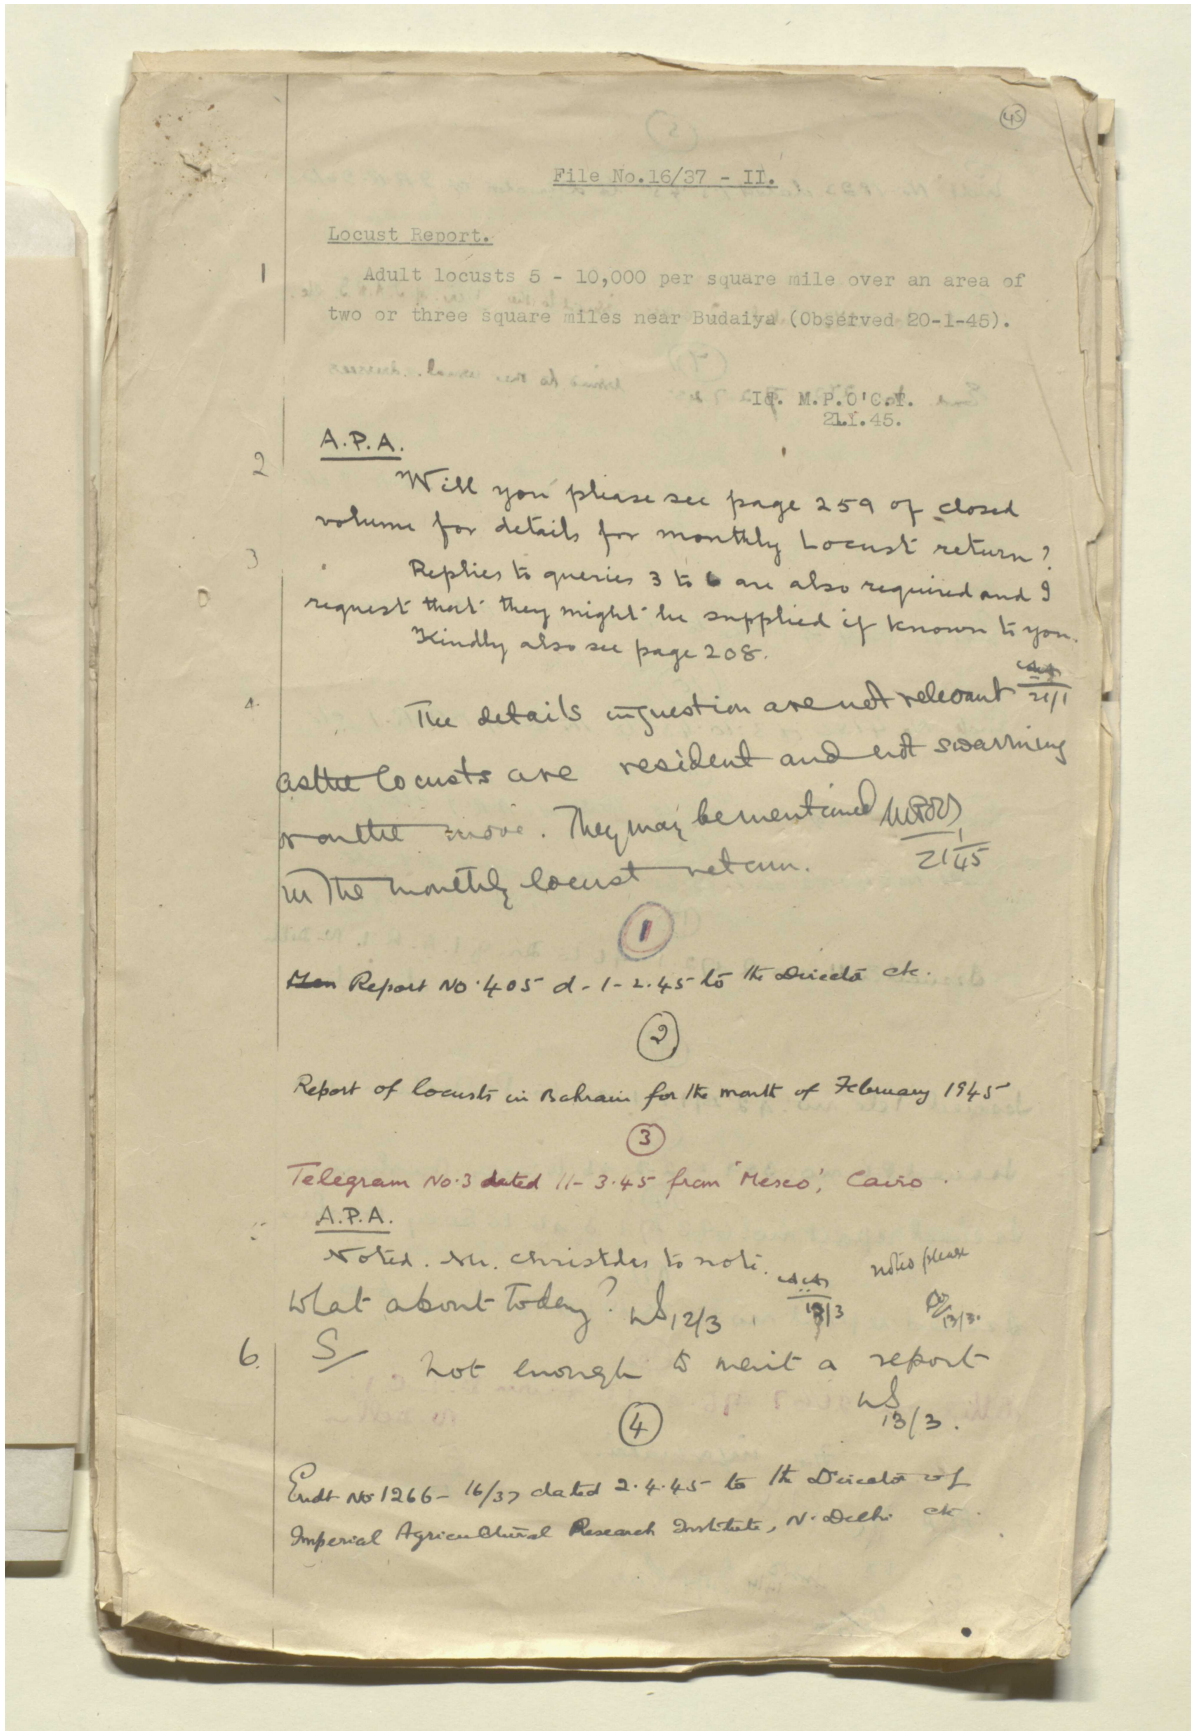 45
File No.16/37 - II.
Locust Report.
1
Adult locusts 5 - 10,000 per square mile over an area of
two or three square miles near Budaiya (Observed 20-1-45).
Id. M.P.O'C.T.
21.1.45.
A.P.A.
2
Will you please see page 259 of closed
volume for details for monthly Locust return?
3
Replies to queries 3 to 6 are also required and I
request that they might be supplied if known to you.
Kindly also see page 208.
21/1
4
The details in question are not relevant
as the locusts are resident and not swarming
or on the move. They may be mentioned
in the monthly locust return.
21/1 45
1
Report No. 405 d- 1-2.45 to the Director etc.
2
Report of locusts in Bahrain for the month of February 1945
3
Telegram No.3 dated 11-3.45 from 'Mesco', Cairo.
A.P.A.
Noted. Mr. to note.
13/3
noted please
13/3.
What about today? 12/3
6.
S/ Not enough to merit a report
13/3.
4
Endt No 1266- 16/37 dated 2.4.45 to the Director of
Imperial Agricultural Research Institute, N. Delhi etc.